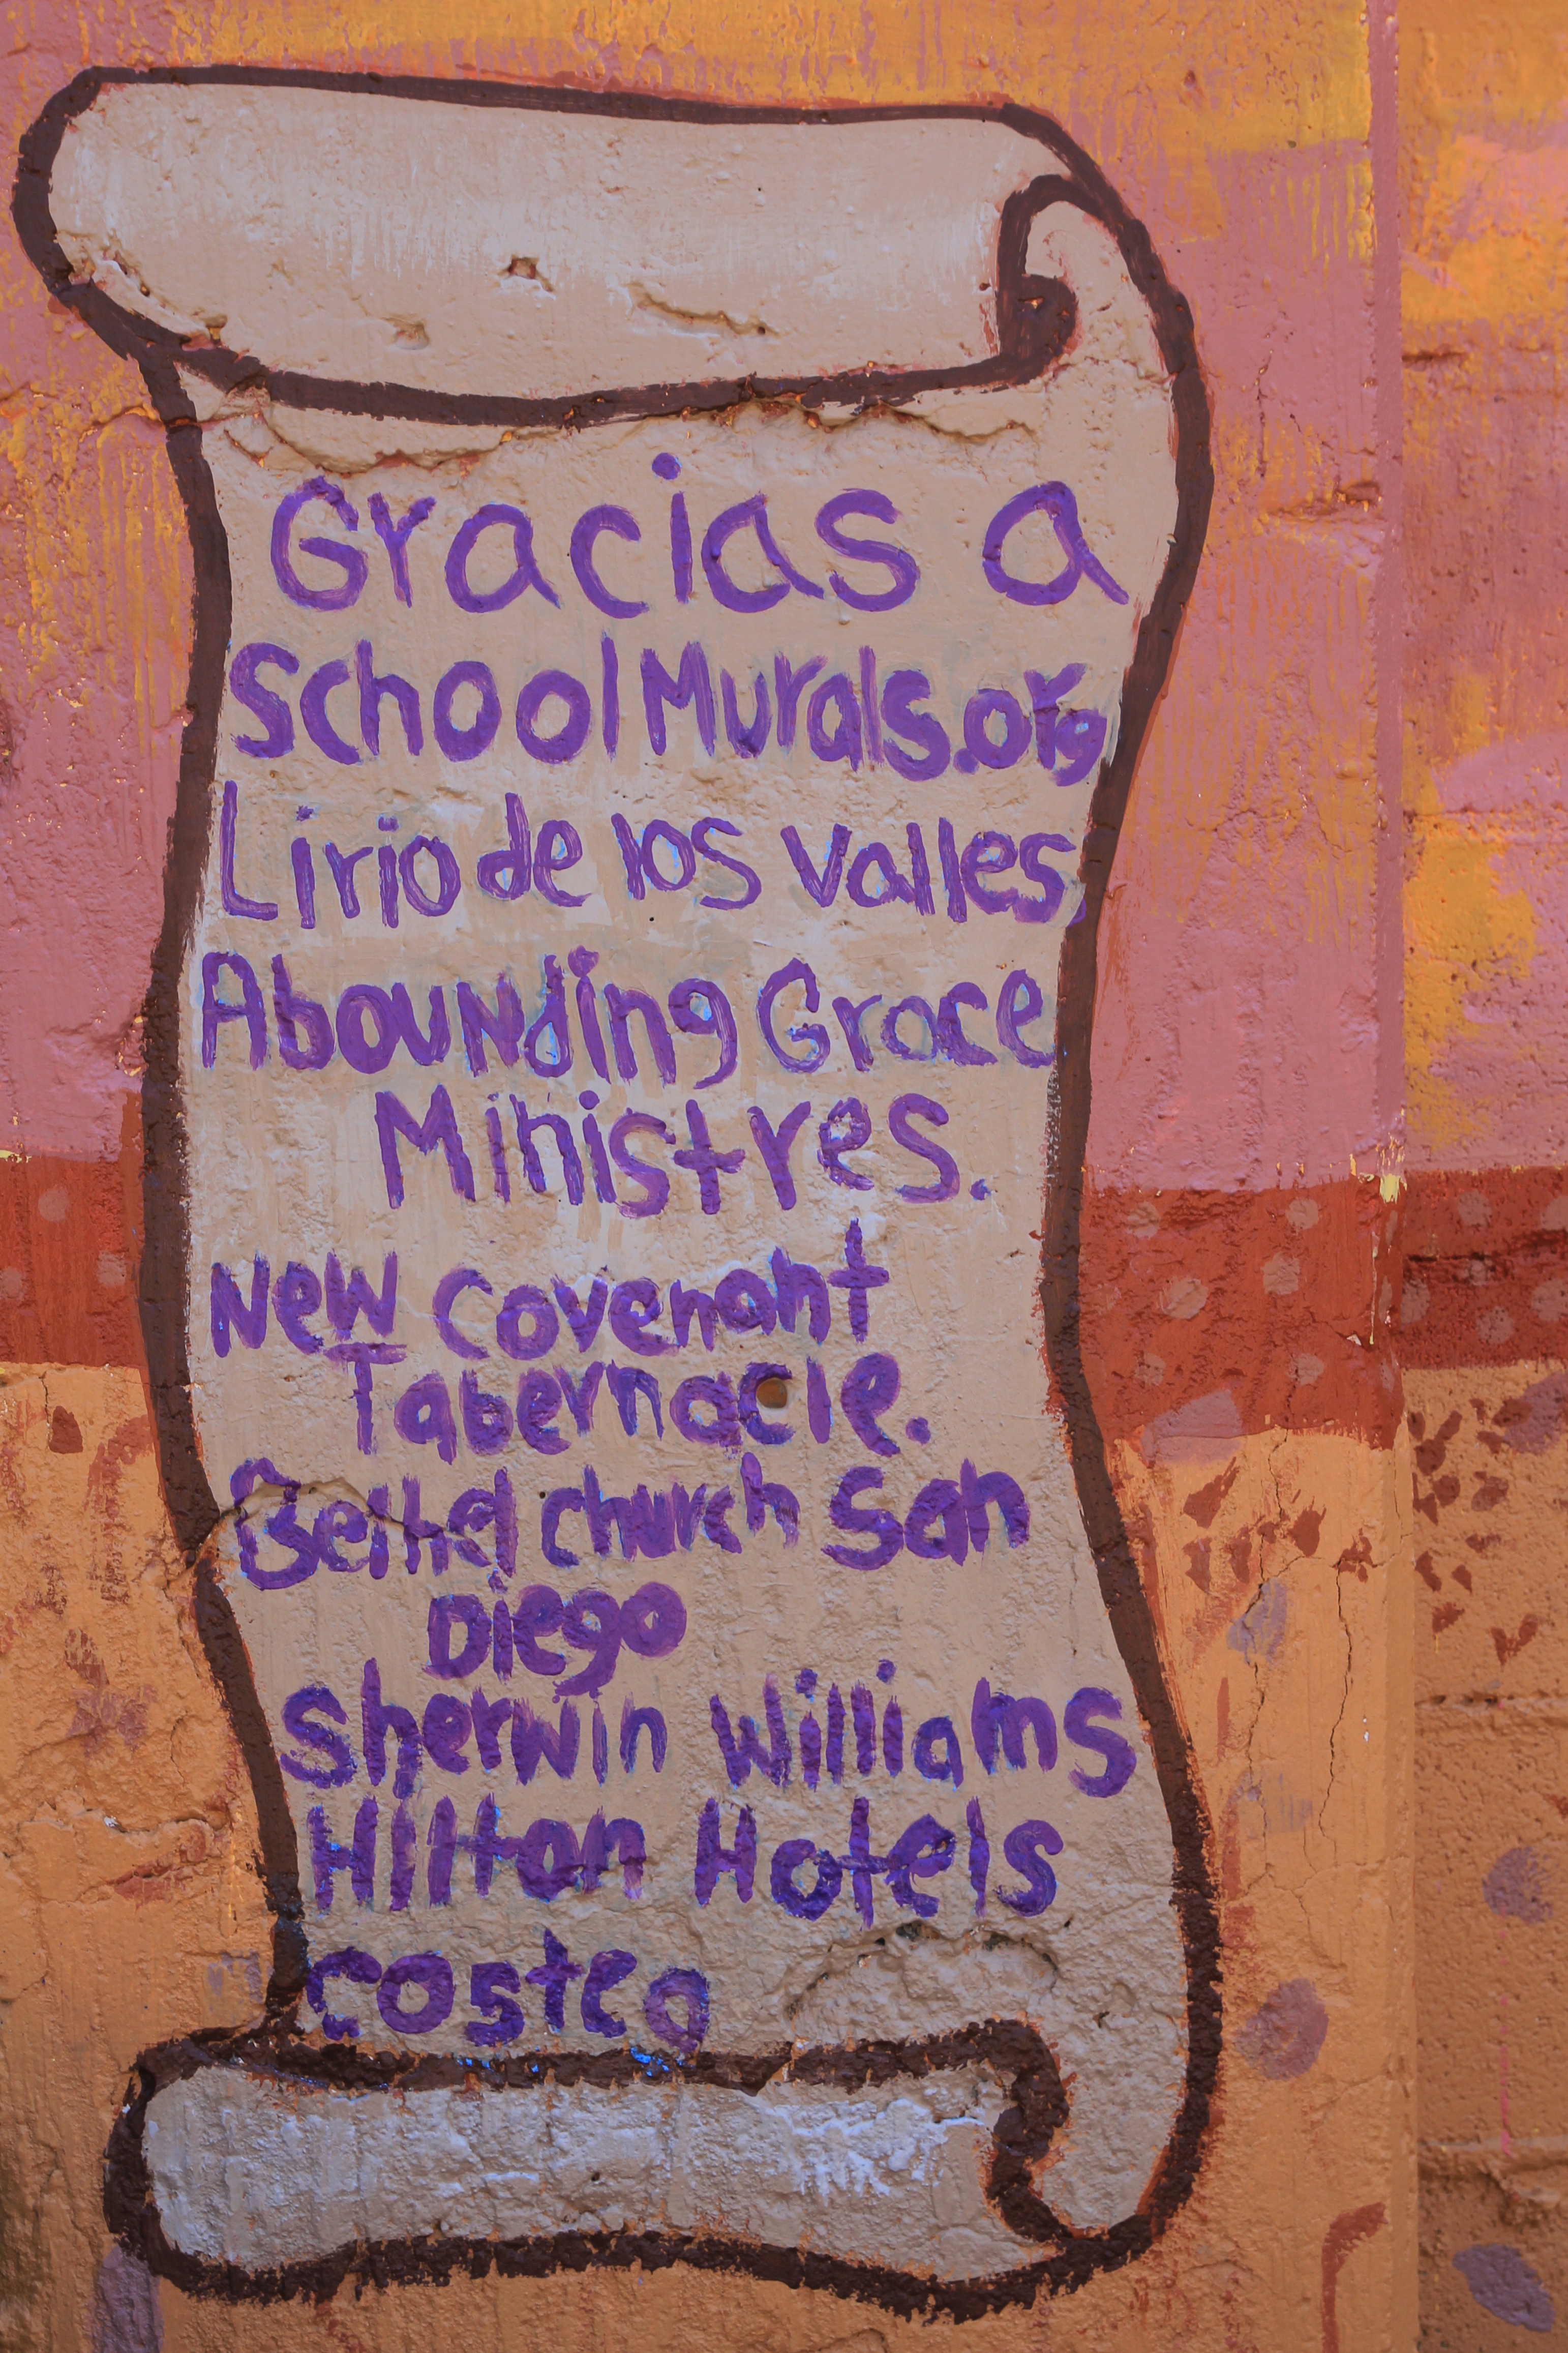 Gracias a
School Murals.org
Lirio de los Valles,
Abounding Grace
Ministres.
New Covenant
Tabernacle.
Bethel church San
Diego
Sherwin Williams
Hilton Hotels
costco